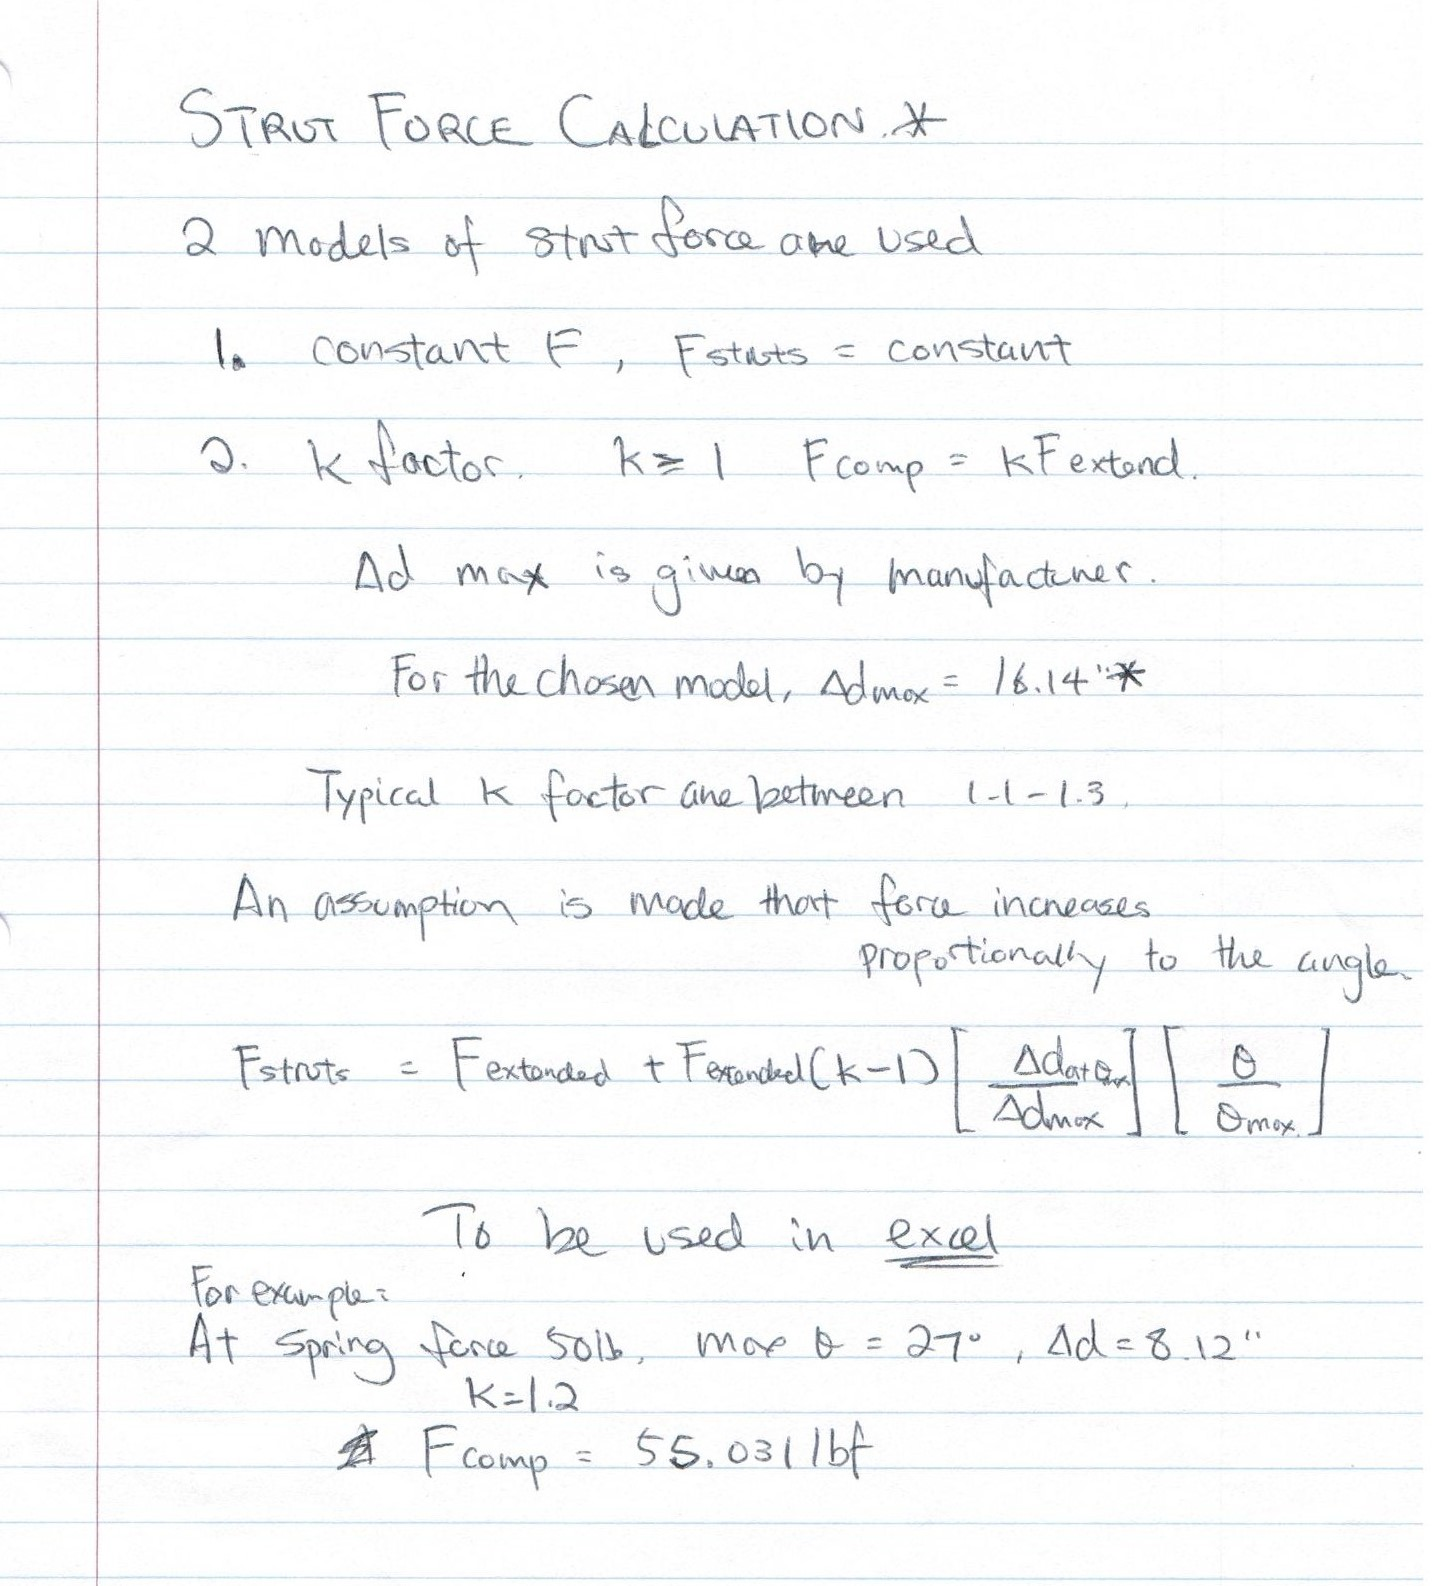 STRUT FORCE CALCULATION.*
2 models of strut force are used
1. constant F, Fstruts = constant
2. k factor. k ≥ 1 Fcomp = kFextend.
Δd max is given by manufacturer.
For the chosen model, Δdmax = 16.14"*
Typical k factor are between 1.1-1.3.
An assumption is made that force increases
proportionally to the angle.
Fstruts = Fextended + Fextended(k-1) [Δdat θm/Δdmax] [θ/θmax.]
To be used in excel
For example:
At spring force 50lb, max θ = 27°, Δd = 8.12"
k=1.2
Fcomp = 55.031 lbf